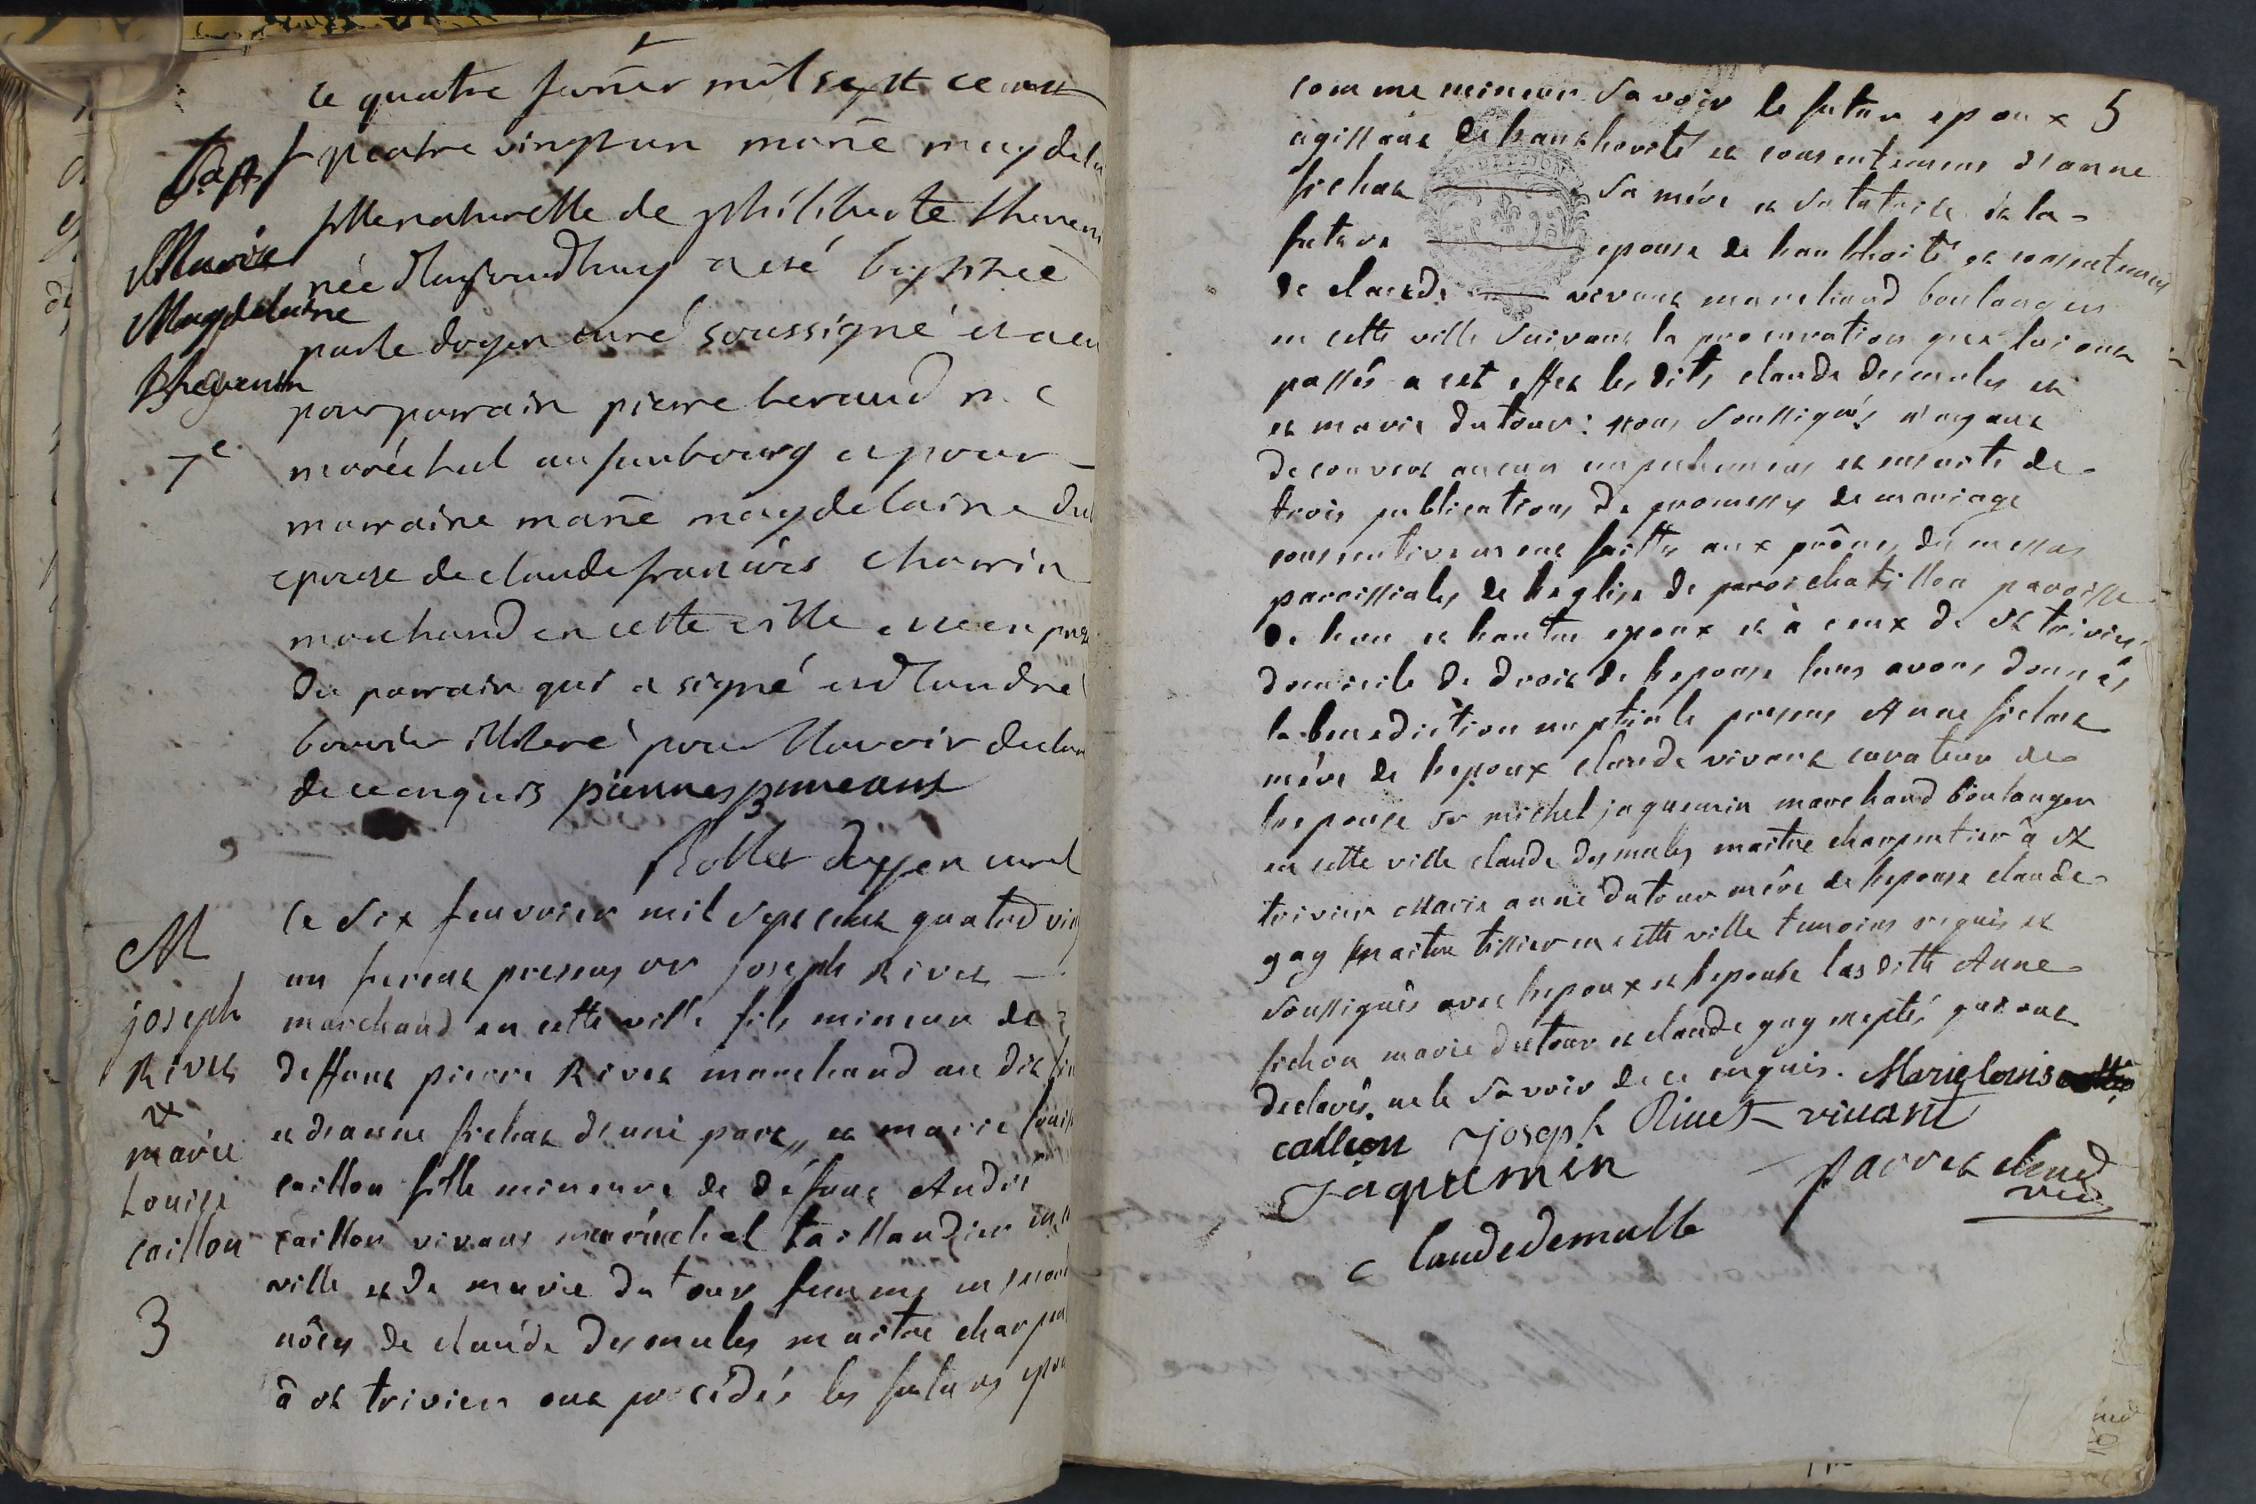 Le quatre fevrier mil sept cent
Bapt quatre vingt un marie magdel
fille naturelle de philiberte theven
Marie
née d'aujourdhuy a eté baptisée
Magdelaine
par le doyen curé soussigné et a eu
thevenin
pour parrain pierre beraud m
7e
maréchal au faubourg et pour
marraine marie magdelaine du
epouse de claude francois chavrin
marchand en cette ville en pres
du parrain qui a signé et
illiteré pour l'avoir declar
de ce enquis
doyen curé
M
joseph
Rivet
et
marie
Louise
caillon
3
Le six feuvrier mil sept cent quatre vin
un furent presens sr joseph Rivet
marchand en cette ville fils mineur de
deffunt pierre Rivet marchand au dit
et d'anne fichat d'une part, et marie louis
caillon fille mineure de défunt André
caillon vivant maréchal taillandier en
ville et de marie dutour femme en
nôces de claude desmules maitre charpen
à st trivier ont procédés les futurs epou
comme mineur savoir le futur epoux 5
agissant de l'authorité et consentement d'anne
fichat sa mére et sa tutrice et la
future epouse de l'authorité et consentement
de claude vivant marchand boulanger
en cette ville suivant la procuration que lui ont
passés a cet effet les dits claude desmules et
et marie dutour: nous soussignés n'ayant
decouvert aucun empechement et ensuite de
trois publications de promesses de mariage
consentivement faitte aux prônes des messes
paroissiales de l'eglise de chatillon paroisse
de l'un et l'autre epoux et à ceux de st trivier
domicile de droit de l'epouse leurs avons donnés
la benediction nuptiale presens Anne fichat
mére de l'epoux claude vivant curateur de
l'epouse sr michel jaquemin marchand boulanger
en cette ville claude desmules maitre charpentier à st
trivier Marie anne dutour mére de l'epouse claude
gay maitre tissier en cette ville temoins requis et
soussignés avec l'epoux et l'epouse lasditte Anne
fichon marie dutour et claude gay exeptés qui ont
declarés ne le savoir de ce enquis. Marie louis
callion Joseph Rivet vivant
Jaquemin
claude demulle